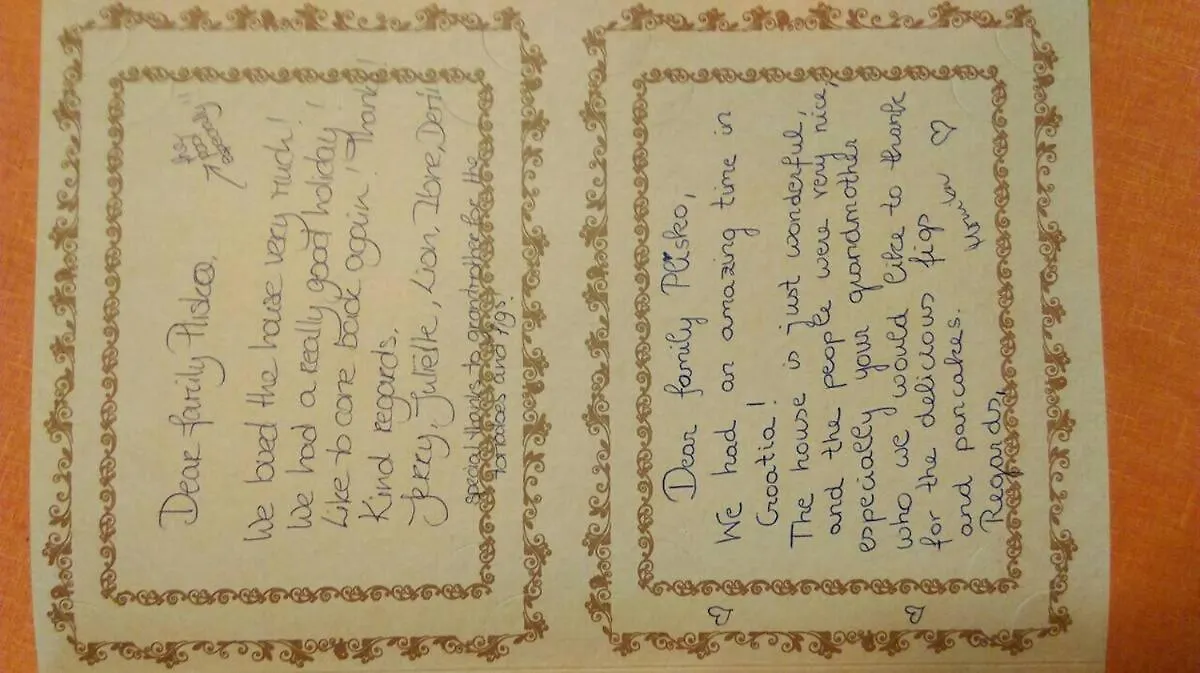 Dear family Pliskoo,
We loved the house very much!
We had a really good holiday!
Like to come back again! Thank!
Kind regards.
Jerry, Juliette, Lion,
special thanks to grandmother for the
tomatoes and figs.
Dear family Plisko,
We had an amazing time in
Croatia!
The house is just wonderful,
and the people were very nice,
especially your grandmother
who we would like to thank
for the delicious figs
and pancakes.
Regards,